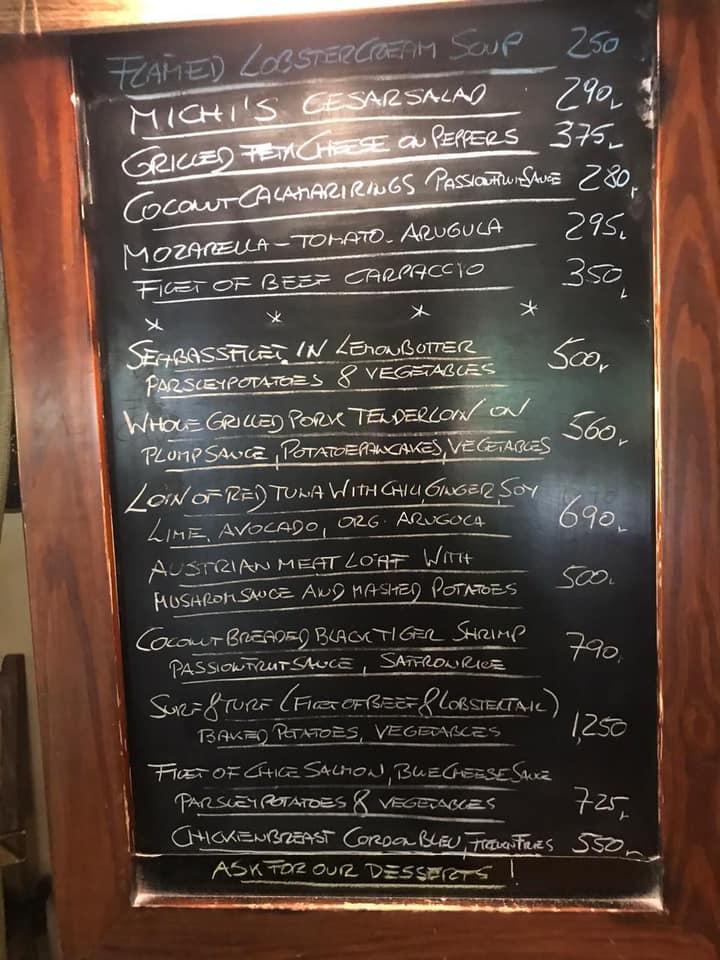 FLAMED LOBSTERCREAM SOUP 250
MICHI'S CESARSALAD 290,
GRILLED FETA CHEESE ON PEPPERS 375,
COCONUT CALAMARIRINGS PASSIONFRUITSAUCE 280,
MOZARELLA-TOMATO-ARUGULA 295,
FILET OF BEEF CARPACCIO 350,
* * * *
SEABASSFILET IN LEMONBUTTER 500,
PARSLEYPOTATOES & VEGETABLES
WHOLE GRILLED PORK TENDERLOIN ON 560,
PLUMPSAUCE, POTATOEPANCAKES, VEGETABLES
LOIN OF RED TUNA WITH CHILI, GINGER, SOY
LIME, AVOCADO, ORG. ARUGULA 690,
AUSTRIAN MEAT LOAF WITH 500,
MUSHROMSAUCE AND MASHED POTATOES
COCONUT BREADED BLACK TIGER SHRIMP 790,
PASSIONFRUITSAUCE, SAFFRONRICE
SURF & TURF (FILET OF BEEF & LOBSTERTAIL)
BAKED POTATOES, VEGETABLES 1,250
FILET OF CHILE SALMON, BLUECHEESE SAUCE
PARSLEYPOTATOES & VEGETABLES 725,
CHICKENBREAST CORDON BLEU, FRENCHFRIES 550,
ASK FOR OUR DESSERTS!